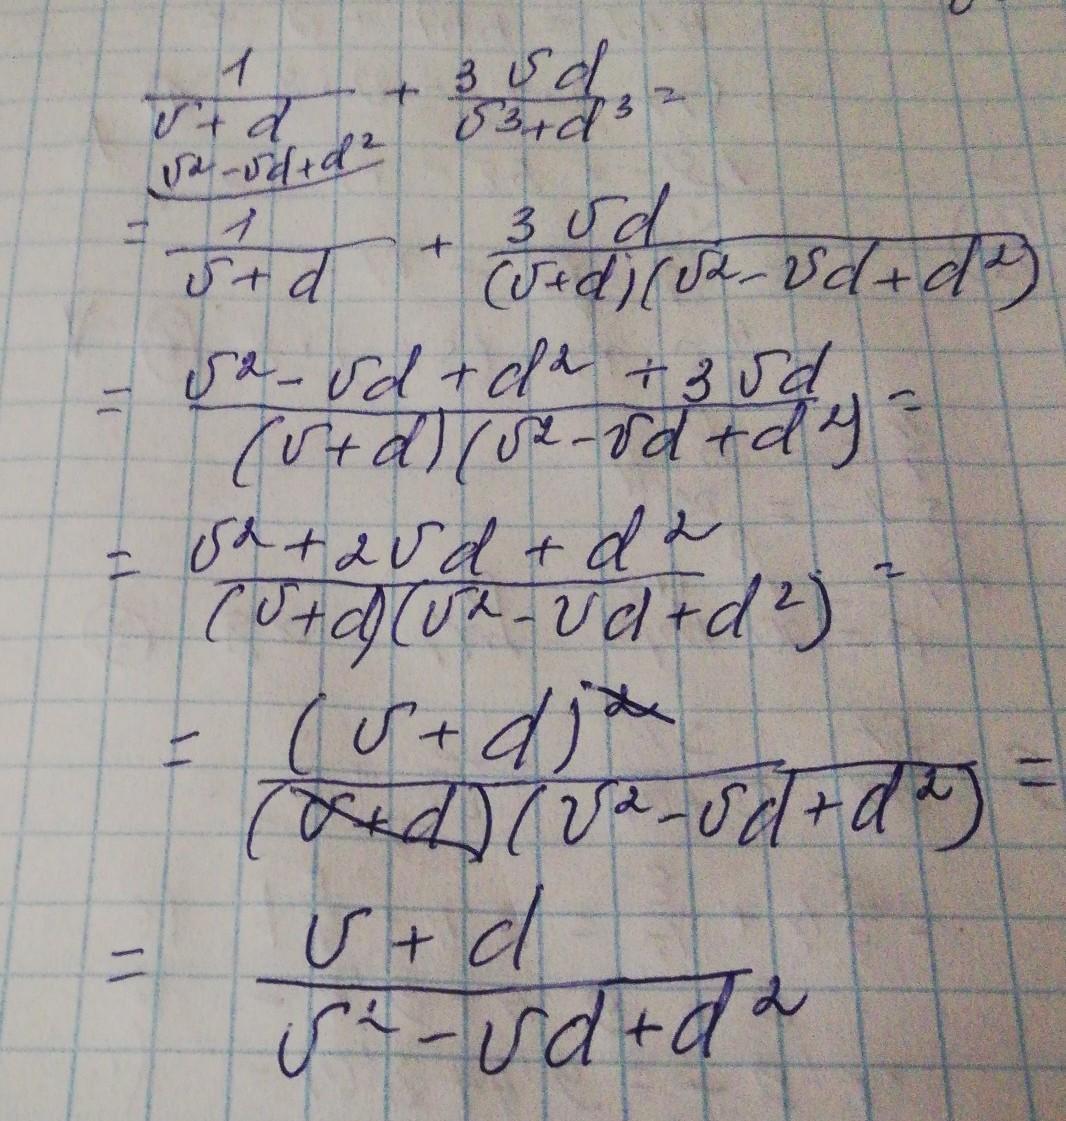 1/(v+d) + 3vd/(v³+d³) =
v²-vd+d²
= 1/(v+d) + 3vd/((v+d)(v²-vd+d²))
= (v²-vd+d²+3vd)/((v+d)(v²-vd+d²)) =
= (v²+2vd+d²)/((v+d)(v²-vd+d²)) =
= (v+d)²/((v+d)(v²-vd+d²)) =
= (v+d)/(v²-vd+d²)